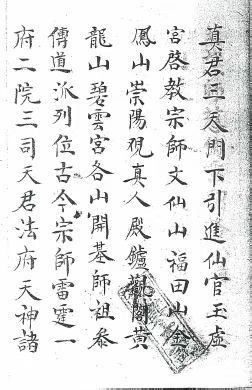 真君三天門下引進仙官玉虛
宮啓教宗師文仙山福田山金
鳳山崇陽觀真人殿鑪觀閣黃
龍山碧雲宮各山開基師祖叅
傳道派列位古今宗師雷霆一
府二院三司天君法府天神諸